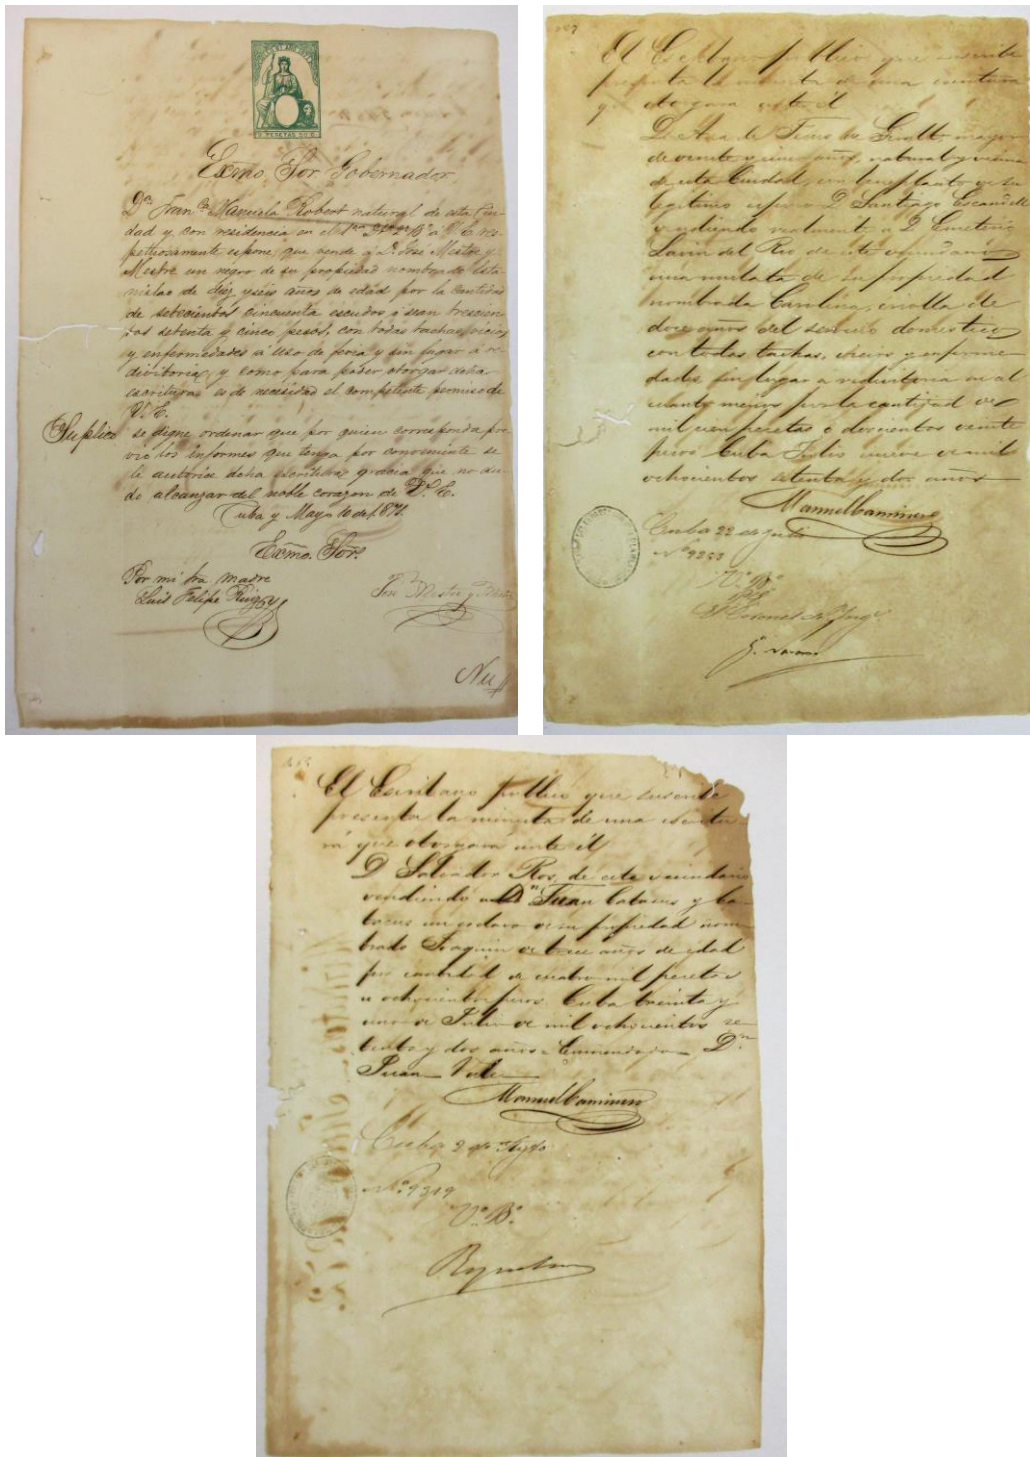 Exmo. Sor. Gobernador
Dña. Franca. Manuela Robert natural de esta Ciu-
dad y con residencia en á V.E. res-
petuosamente espone; que vende á Dn. José Mestre y
Mestre un negro de su propiedad nombrado Esta-
nislao de diez y seis años de edad por la cantidad
de setecientos cincuenta escudos ó sean trescien-
tos setenta y cinco pesos, con todas tachas, vicios
y enfermedades á uso de feria y sin lugar á re-
divitoria, y como para poder otorgar dicha
escritura es de necesidad el competente permiso de
V.E.
Suplico se digne ordenar que por quien corresponda pre-
vio los informes que tenga por conveniente se
le autorice dicha escritura gracia que no du-
do alcanzar del noble corazon de V.E.
Cuba y Mayo 10 de 1871.
Exmo. Sor.
Por mi Sra. madre
Luis Felipe
José Mestre y Mestre
El Escribano publico que suscribe
presenta la minuta de una escritura
que otorgara ante él
Da. Ana de mayor
de veinte y cinco años, natural y vecina
de esta Ciudad, con beneplacito de su
legitimo esposo D. Santiago Escandell
vendiendo realmente a D. Emeterio
Lavin del Rio de este vecindario
una mulata de su propiedad
nombrada Carolina, criolla de
doce años del servicio domestico
con todas tachas, vicios y enferme-
dades sin lugar a redivitoria
por la cantidad de
mil cien pesetas o doscientos veinte
pesos Cuba Julio nueve de mil
ochocientos setenta y dos años
Manuel Caminero
Cuba 22 de Julio
No. 9253
Vo. Bo.
El Escribano publico que suscribe
presenta la minuta de una escritu-
ra que otorgara ante él
D Salvador Ros, de este vecindario
vendiendo a Dn Juan Cabacas y Ca-
bacas un esclavo de su propiedad nom-
brado Joaquin de trece años de edad
por cantidad de cuatro mil pesetas
u ochocientos pesos Cuba treinta y
uno de Julio de mil ochocientos se-
tenta y dos años = Enmendado = Dn
Juan = Vale
Manuel Caminero
Cuba 2 de Agto
No. 9319
Vo. Bo.